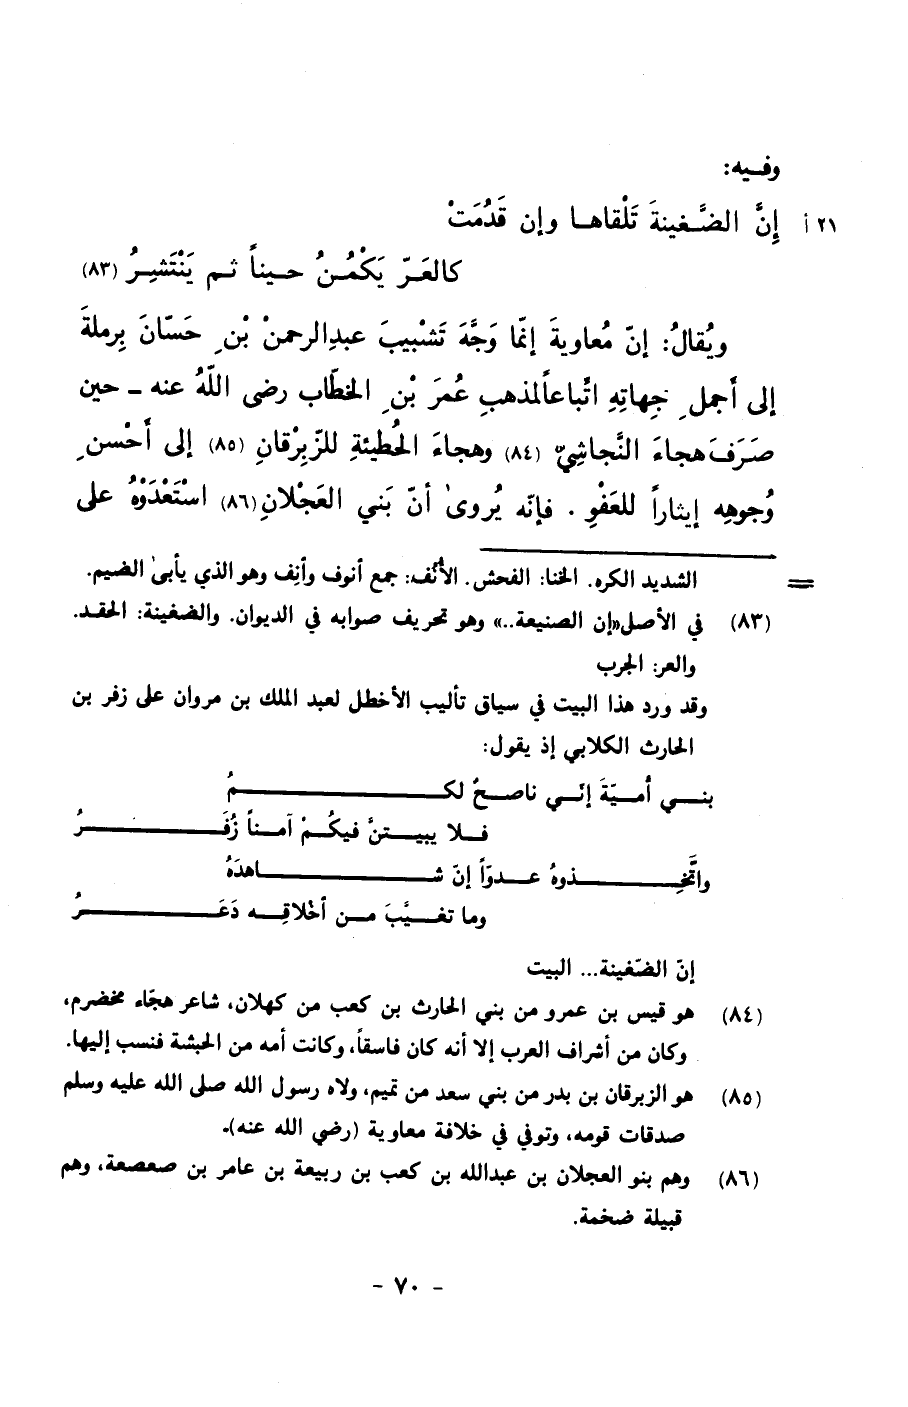 وفـيه:
٢١ أ إِنَّ الضَّـغينةَ تَلْقاهـا وإن قَدُمَتْ
كالعَـرّ يَكْمُـنُ حـيناً ثـم يَنْتَشِـرُ (٨٣)
ويُقالُ: إنّ مُعاويةَ إنّما وَجَّهَ تَشْبيبَ عبدِالرحمنْ بْنِ حَسّانَ بِرملةَ
إلى أَجملِ جِهاتِهِ اتُّباعاًلمذهبِ عُمَرَ بْنِ الخطّاب رضى اللّهُ عنه ـ حين
صَرَفَ هجاءَ النَّجاشِيّ (٨٤) وهجاءَ الحُطيئةِ للزّبِرْقانِ (٨٥) إلى أَحْسنِ
وُجوهِه إيثاراً للعَفْوِ . فإنّه يُروىٰ أنّ بَني العَجْلانِ(٨٦) اسْتَعْدَوْهُ على
= الشديد الكره. الخنا: الفحش. الأُنُف: جمع أنوف وأنِف وهو الذي يأبىٰ الضيم.
(٨٣) في الأصل«إن الصنيعة..» وهو تحريف صوابه في الديوان. والضغينة: الحقد.
والعر: الجرب
وقد ورد هذا البيت في سياق تأليب الأخطل لعبد الملك بن مروان على زفر بن
الحارث الكلابي إذ يقول:
بنـي أُميّةَ إنّـي ناصـحٌ لكـــمُ
فـلا يبيـتنَّ فيكُـمْ آمـناً زُفَـــرُ
واتَّخِـــذوهُ عـدوّاً إنّ شـــاهدَهُ
وما تغـيَّبَ مـن أخْلاقِـه دَعَـــرُ
إنّ الضّغينة... البيت
(٨٤) هو قيس بن عمرو من بني الحارث بن كعب من كهلان، شاعر هجّاء مخضرم،
وكان من أشراف العرب إلا أنه كان فاسقاً، وكانت أمه من الحبشة فنسب إليها.
(٨٥) هو الزبرقان بن بدر من بني سعد من تميم، ولاه رسول الله صلى الله عليه وسلم
صدقات قومه، وتوفي في خلافة معاوية (رضي الله عنه).
(٨٦) وهم بنو العجلان بن عبدالله بن كعب بن ربيعة بن عامر بن صعصعة، وهم
قبيلة ضخمة.
- ٧٠ -